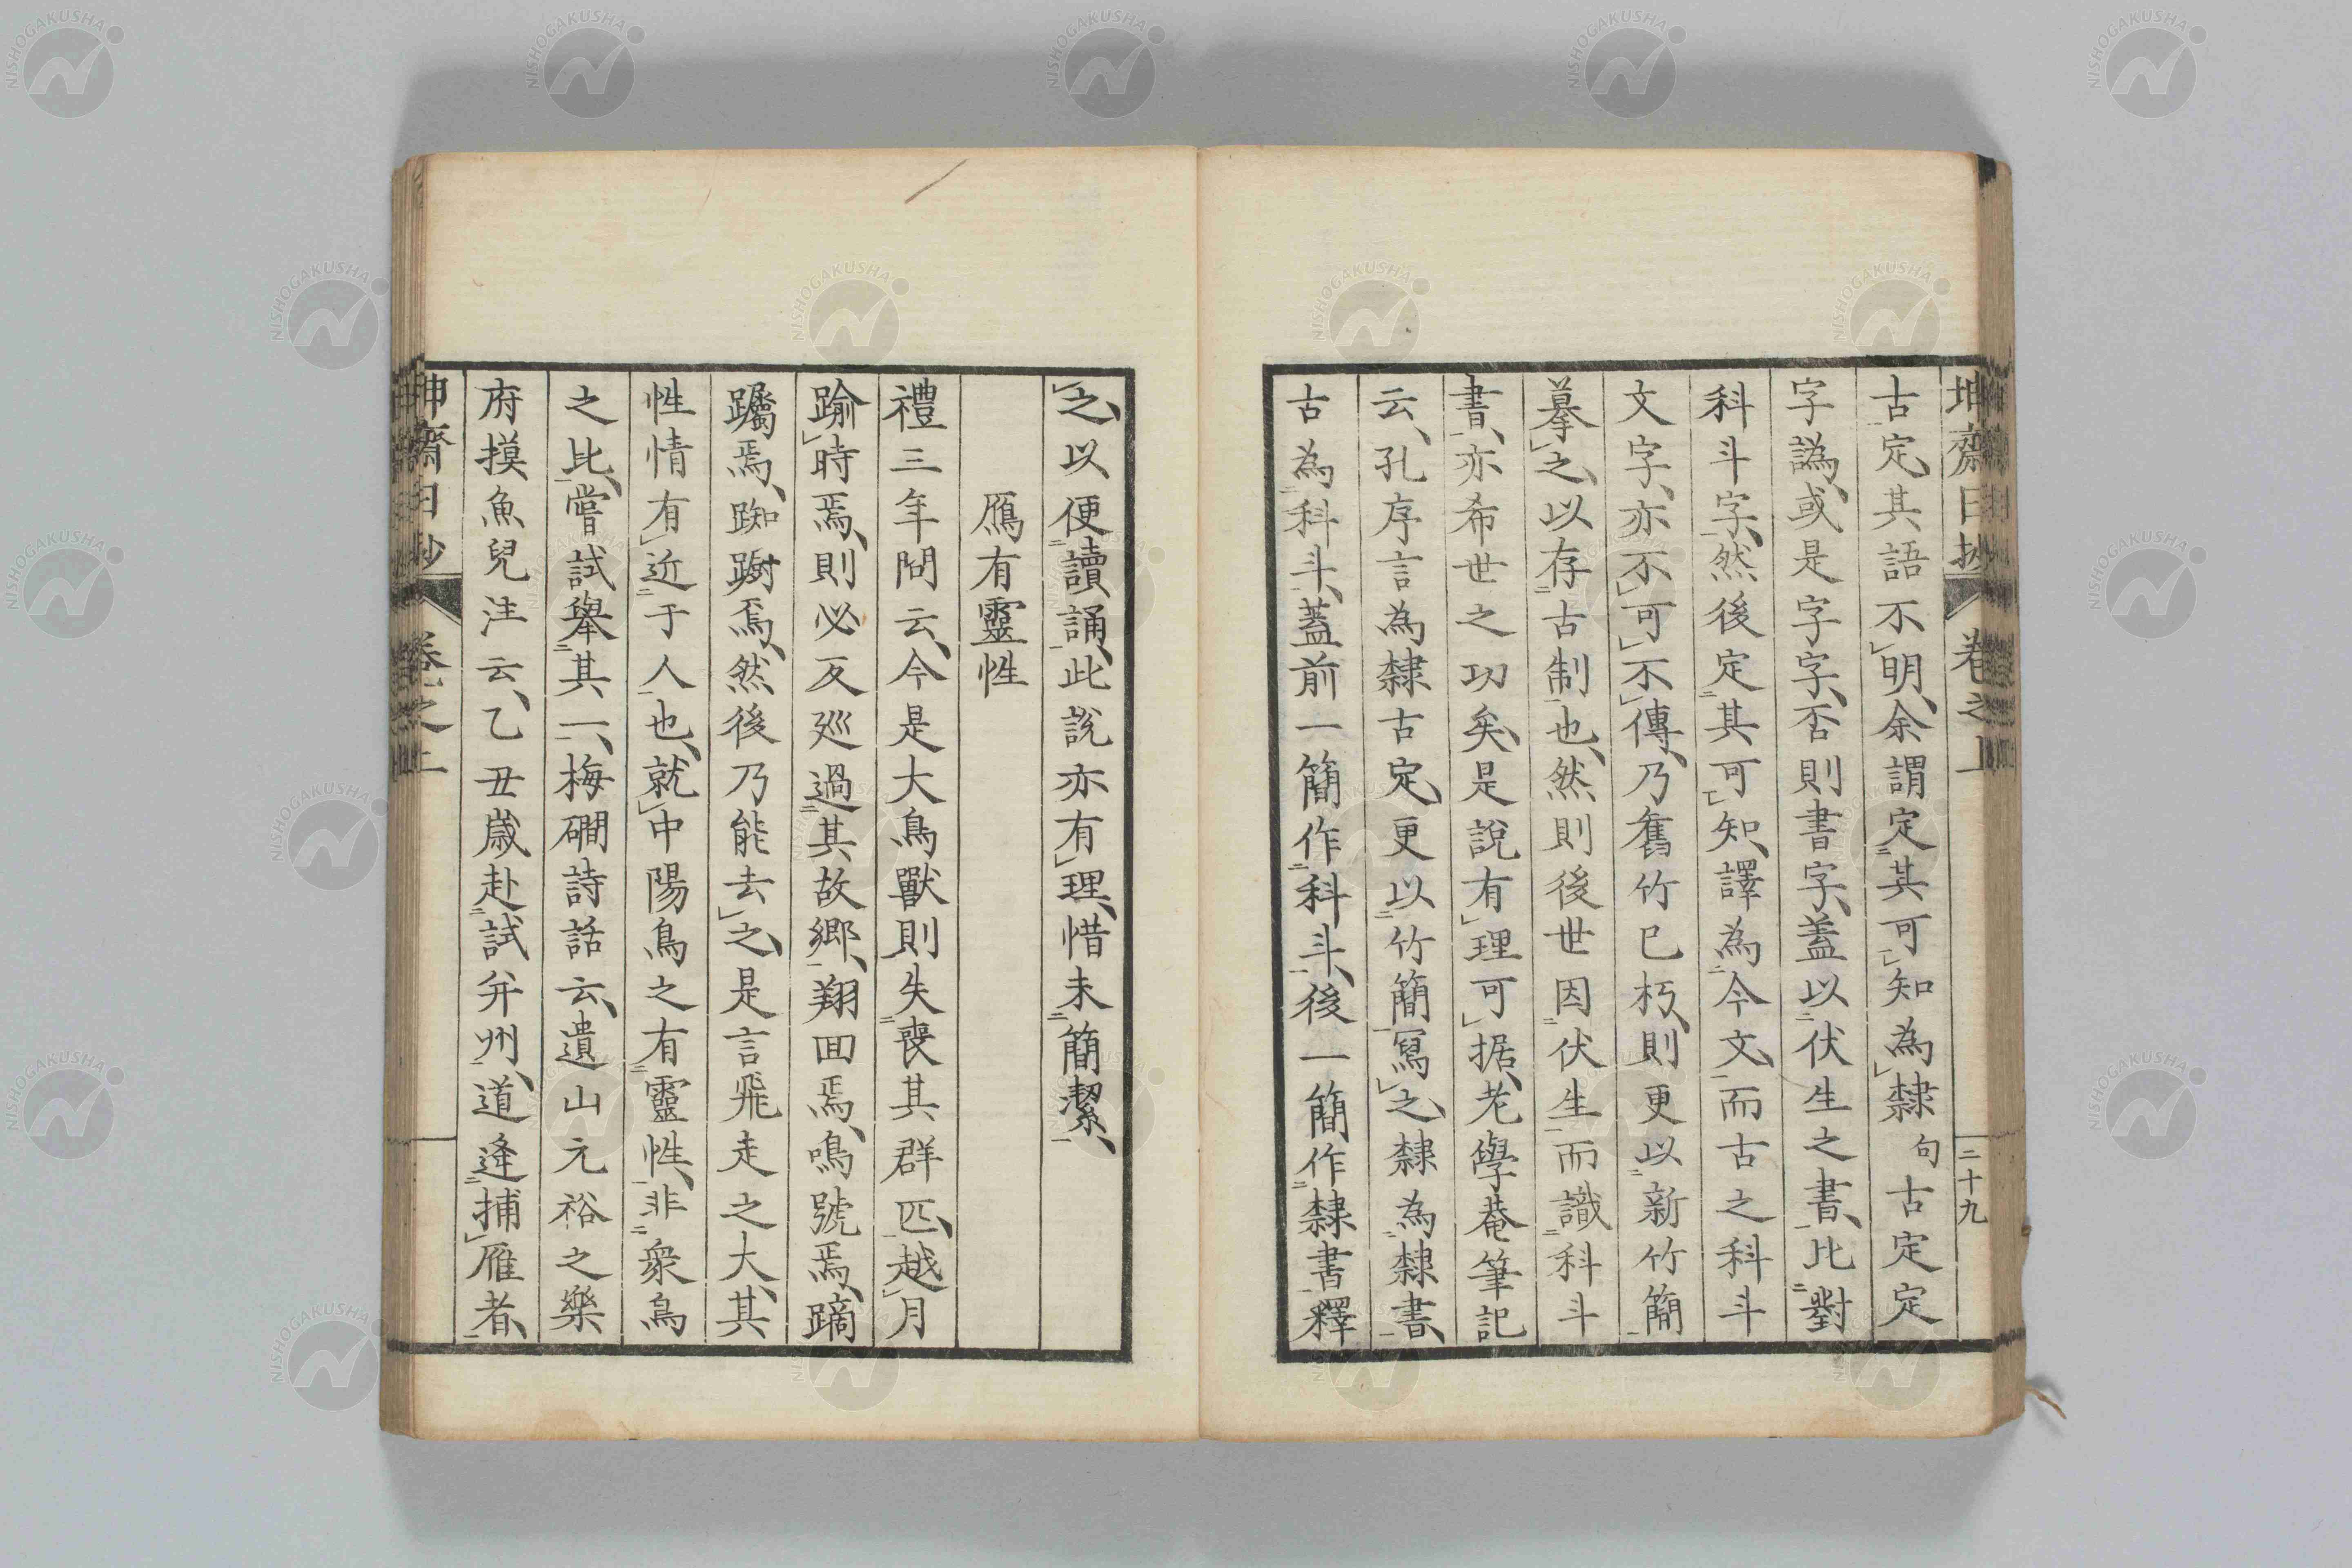 坤齋日抄 卷之上 二十九
古定、其語不明、余謂定其可知為隸句古定定
字譌、或是字字、否則書字、蓋以伏生之書、比對
科斗字、然後定其可知、譯為今文、而古之科斗
文字、亦不可不傳、乃舊竹已朽、則更以新竹簡
摹之、以存古制也、然則後世因伏生而識科斗
書、亦希世之功矣、是說有理可据、老學菴筆記
云、孔序言為隸古定、更以竹簡寫之、隸為隸書、
古為科斗、蓋前一簡作科斗、後一簡作隸書釋
之、以便讀誦、此說亦有理、惜未簡潔、
鴈有靈性
禮三年問云、今是大鳥獸則失喪其群匹、越月
踰時焉、則必反廵過其故鄉、翔囬焉、鳴號焉、蹢
躅焉、踟躕焉、然後乃能去之、是言飛走之大、其
性情有近于人也、就中陽鳥之有靈性、非衆鳥
之比、嘗試舉其一、梅磵詩話云、遺山元裕之樂
府摸魚兒注云、乙丑歲赴試并州、道逢捕雁者、
坤齋日抄 卷之上
NISHOGAKUSHA